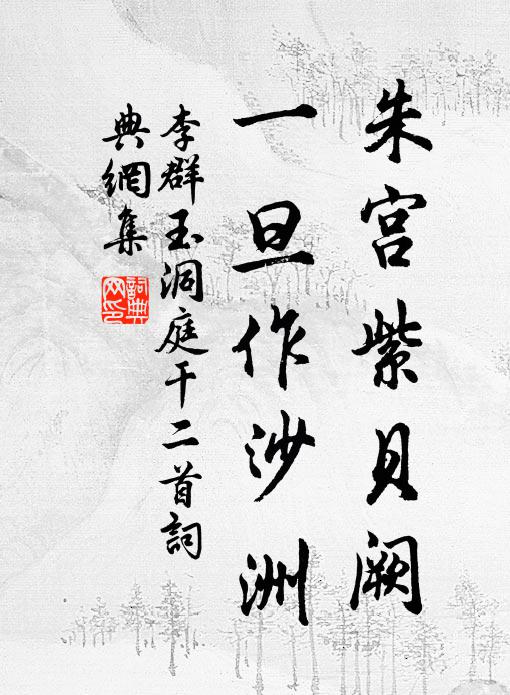 朱宫紫贝阙
一旦作沙洲
李群玉洞庭干二首詞
典網集
詞典网印